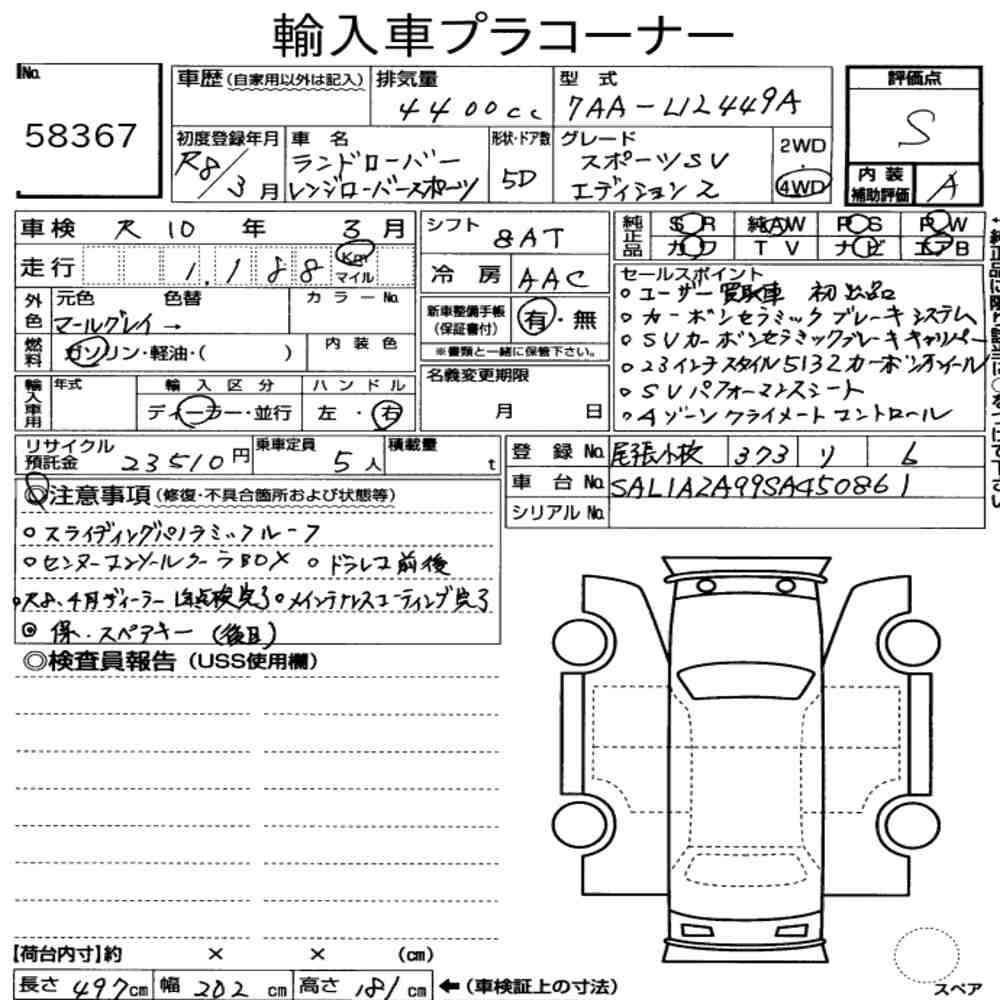 輸入車プラコーナー
No. 58367
車歴(自家用以外は記入) 排気量 4400cc 型式 7AA-L12449A
初度登録年月 R8/3月 車名 ランドローバー レンジローバースポーツ 形状・ドア数 5D グレード スポーツSV エディション2 2WD・4WD
評価点 S
内装補助評価 A
車検 R10年3月 シフト 8AT
走行 1,188 Km マイル 冷房 AAC
純正品 SR 純AW PS PW
カワ TV ナビ エアB
外色 元色 色替 カラーNo.
マールグレイ→
燃料 ガソリン・軽油・( ) 内装色
新車整備手帳(保証書付) 有・無
※書類と一緒に保管下さい。
輸入車用 年式 輸入区分 ハンドル
ディーラー・並行 左・右
名義変更期限 月 日
セールスポイント
○ユーザー買取車 初出品
○カーボンセラミックブレーキシステム
○SVカーボンセラミックブレーキキャリパー
○23インチスタイル5132カーボンホイール
○SVパフォーマンスシート
○4ゾーンクライメートコントロール
リサイクル預託金 23510円 乗車定員 5人 積載量 t
登録No. 尾張小牧 373 リ 6
車台No. SAL1A2A99SA450861
シリアルNo.
◎注意事項(修復・不具合箇所および状態等)
○スライディングパノラミックルーフ
○センターコンソールクーラBOX ○ドラレコ前後
○R8、4月ディーラー 点検完了 ○メインテナスコーティング完了
◎保・スペアキー(後日)
◎検査員報告(USS使用欄)
【荷台内寸】約 × × (cm)
長さ 497cm 幅 202cm 高さ 181cm ←(車検証上の寸法)
スペア